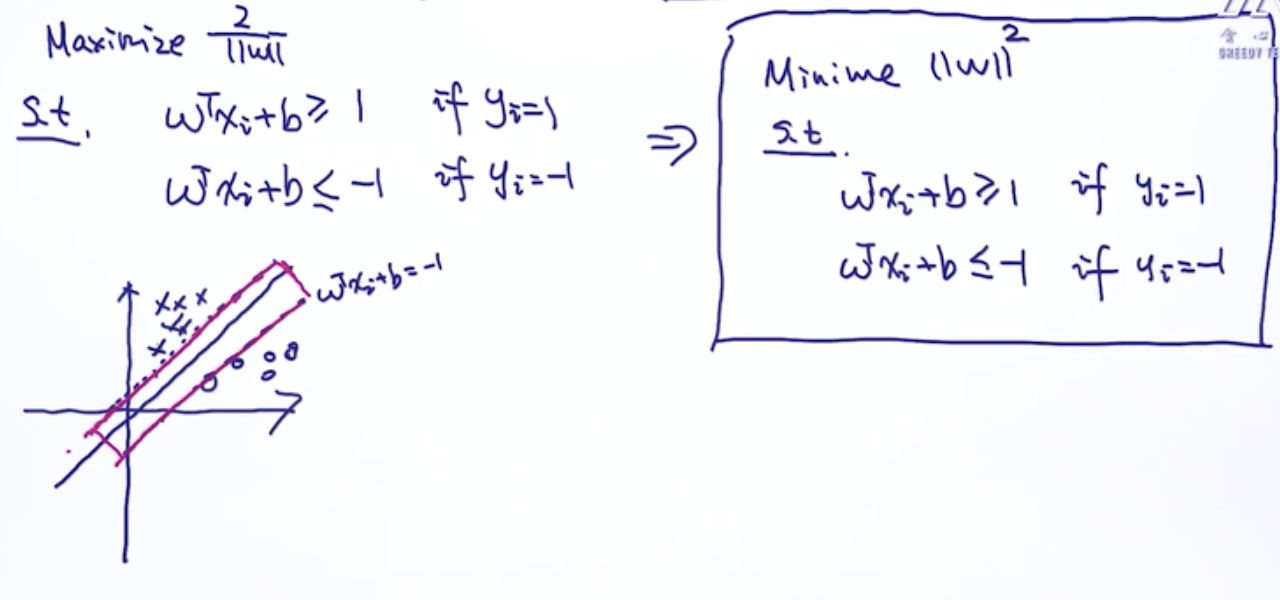 Maximize 2/||w||
s.t. wᵀxᵢ+b ≥ 1 if yᵢ=1
wᵀxᵢ+b ≤ -1 if yᵢ=-1
wᵀxᵢ+b=-1
⇒
Minime ||w||²
s.t.
wᵀxᵢ+b ≥ 1 if yᵢ=1
wᵀxᵢ+b ≤ -1 if yᵢ=-1
GREEDY TE